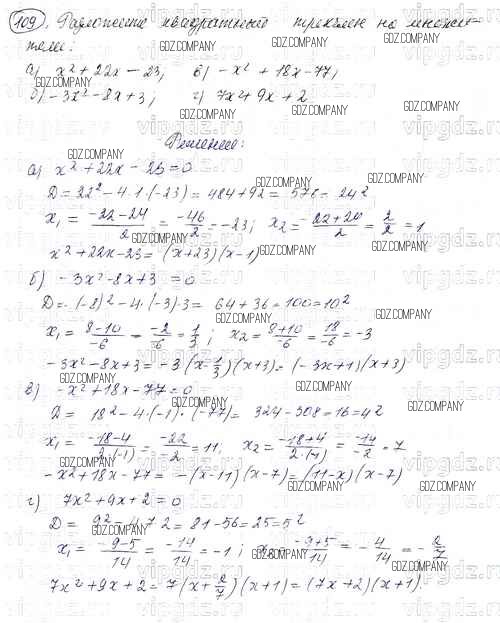 109. Разложите квадратный трехчлен на множи-
тели:
а) x² + 22x − 23; в) −x² + 18x − 77;
б) −3x² − 8x + 3; г) 7x² + 9x + 2
Решение:
а) x² + 22x − 23 = 0
D = 22² − 4 · 1 · (−23) = 484 + 92 = 576 = 24²
x₁ = (−22−24)/2 = −46/2 = −23; x₂ = (−22+24)/2 = 2/2 = 1
x² + 22x − 23 = (x+23)(x−1)
б) −3x² − 8x + 3 = 0
D = (−8)² − 4 · (−3) · 3 = 64 + 36 = 100 = 10²
x₁ = (8−10)/−6 = −2/−6 = 1/3; x₂ = (8+10)/−6 = 18/−6 = −3
−3x² − 8x + 3 = −3(x − 1/3)(x+3) = (−3x+1)(x+3)
в) −x² + 18x − 77 = 0
D = 18² − 4 · (−1) · (−77) = 324 − 308 = 16 = 4²
x₁ = (−18−4)/(2·(−1)) = −22/−2 = 11; x₂ = (−18+4)/(2·(−1)) = −14/−2 = 7
−x² + 18x − 77 = −(x−11)(x−7) = (11−x)(x−7)
г) 7x² + 9x + 2 = 0
D = 9² − 4 · 7 · 2 = 81 − 56 = 25 = 5²
x₁ = (−9−5)/14 = −14/14 = −1; x₂ = (−9+5)/14 = −4/14 = −2/7
7x² + 9x + 2 = 7(x + 2/7)(x+1) = (7x+2)(x+1)
GDZ.COMPANY
vipgdz.ru